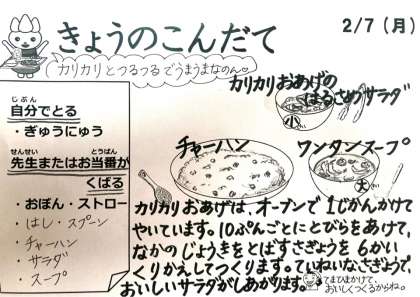 きょうのこんだて
2/7（月）
カリカリとつるつるでうまうまなのん。
カリカリおあげの
はるさめサラダ
小
チャーハン
ワンタンスープ
大
じぶん
自分でとる
・ぎゅうにゅう
せんせい とうばん
先生またはお当番が
くばる
・おぼん・ストロー
・はし・スプーン
・チャーハン
・サラダ
・スープ
カリカリおあげは、オーブンで1じかんかけて
やいています。10ぷんごとにとびらをあけて、
なかのじょうきをとばすさぎょうを6かい
くりかえしてつくります。ていねいなさぎょうで
おいしいサラダがしあがります。
てまひまかけて、
おいしくつくるからね。